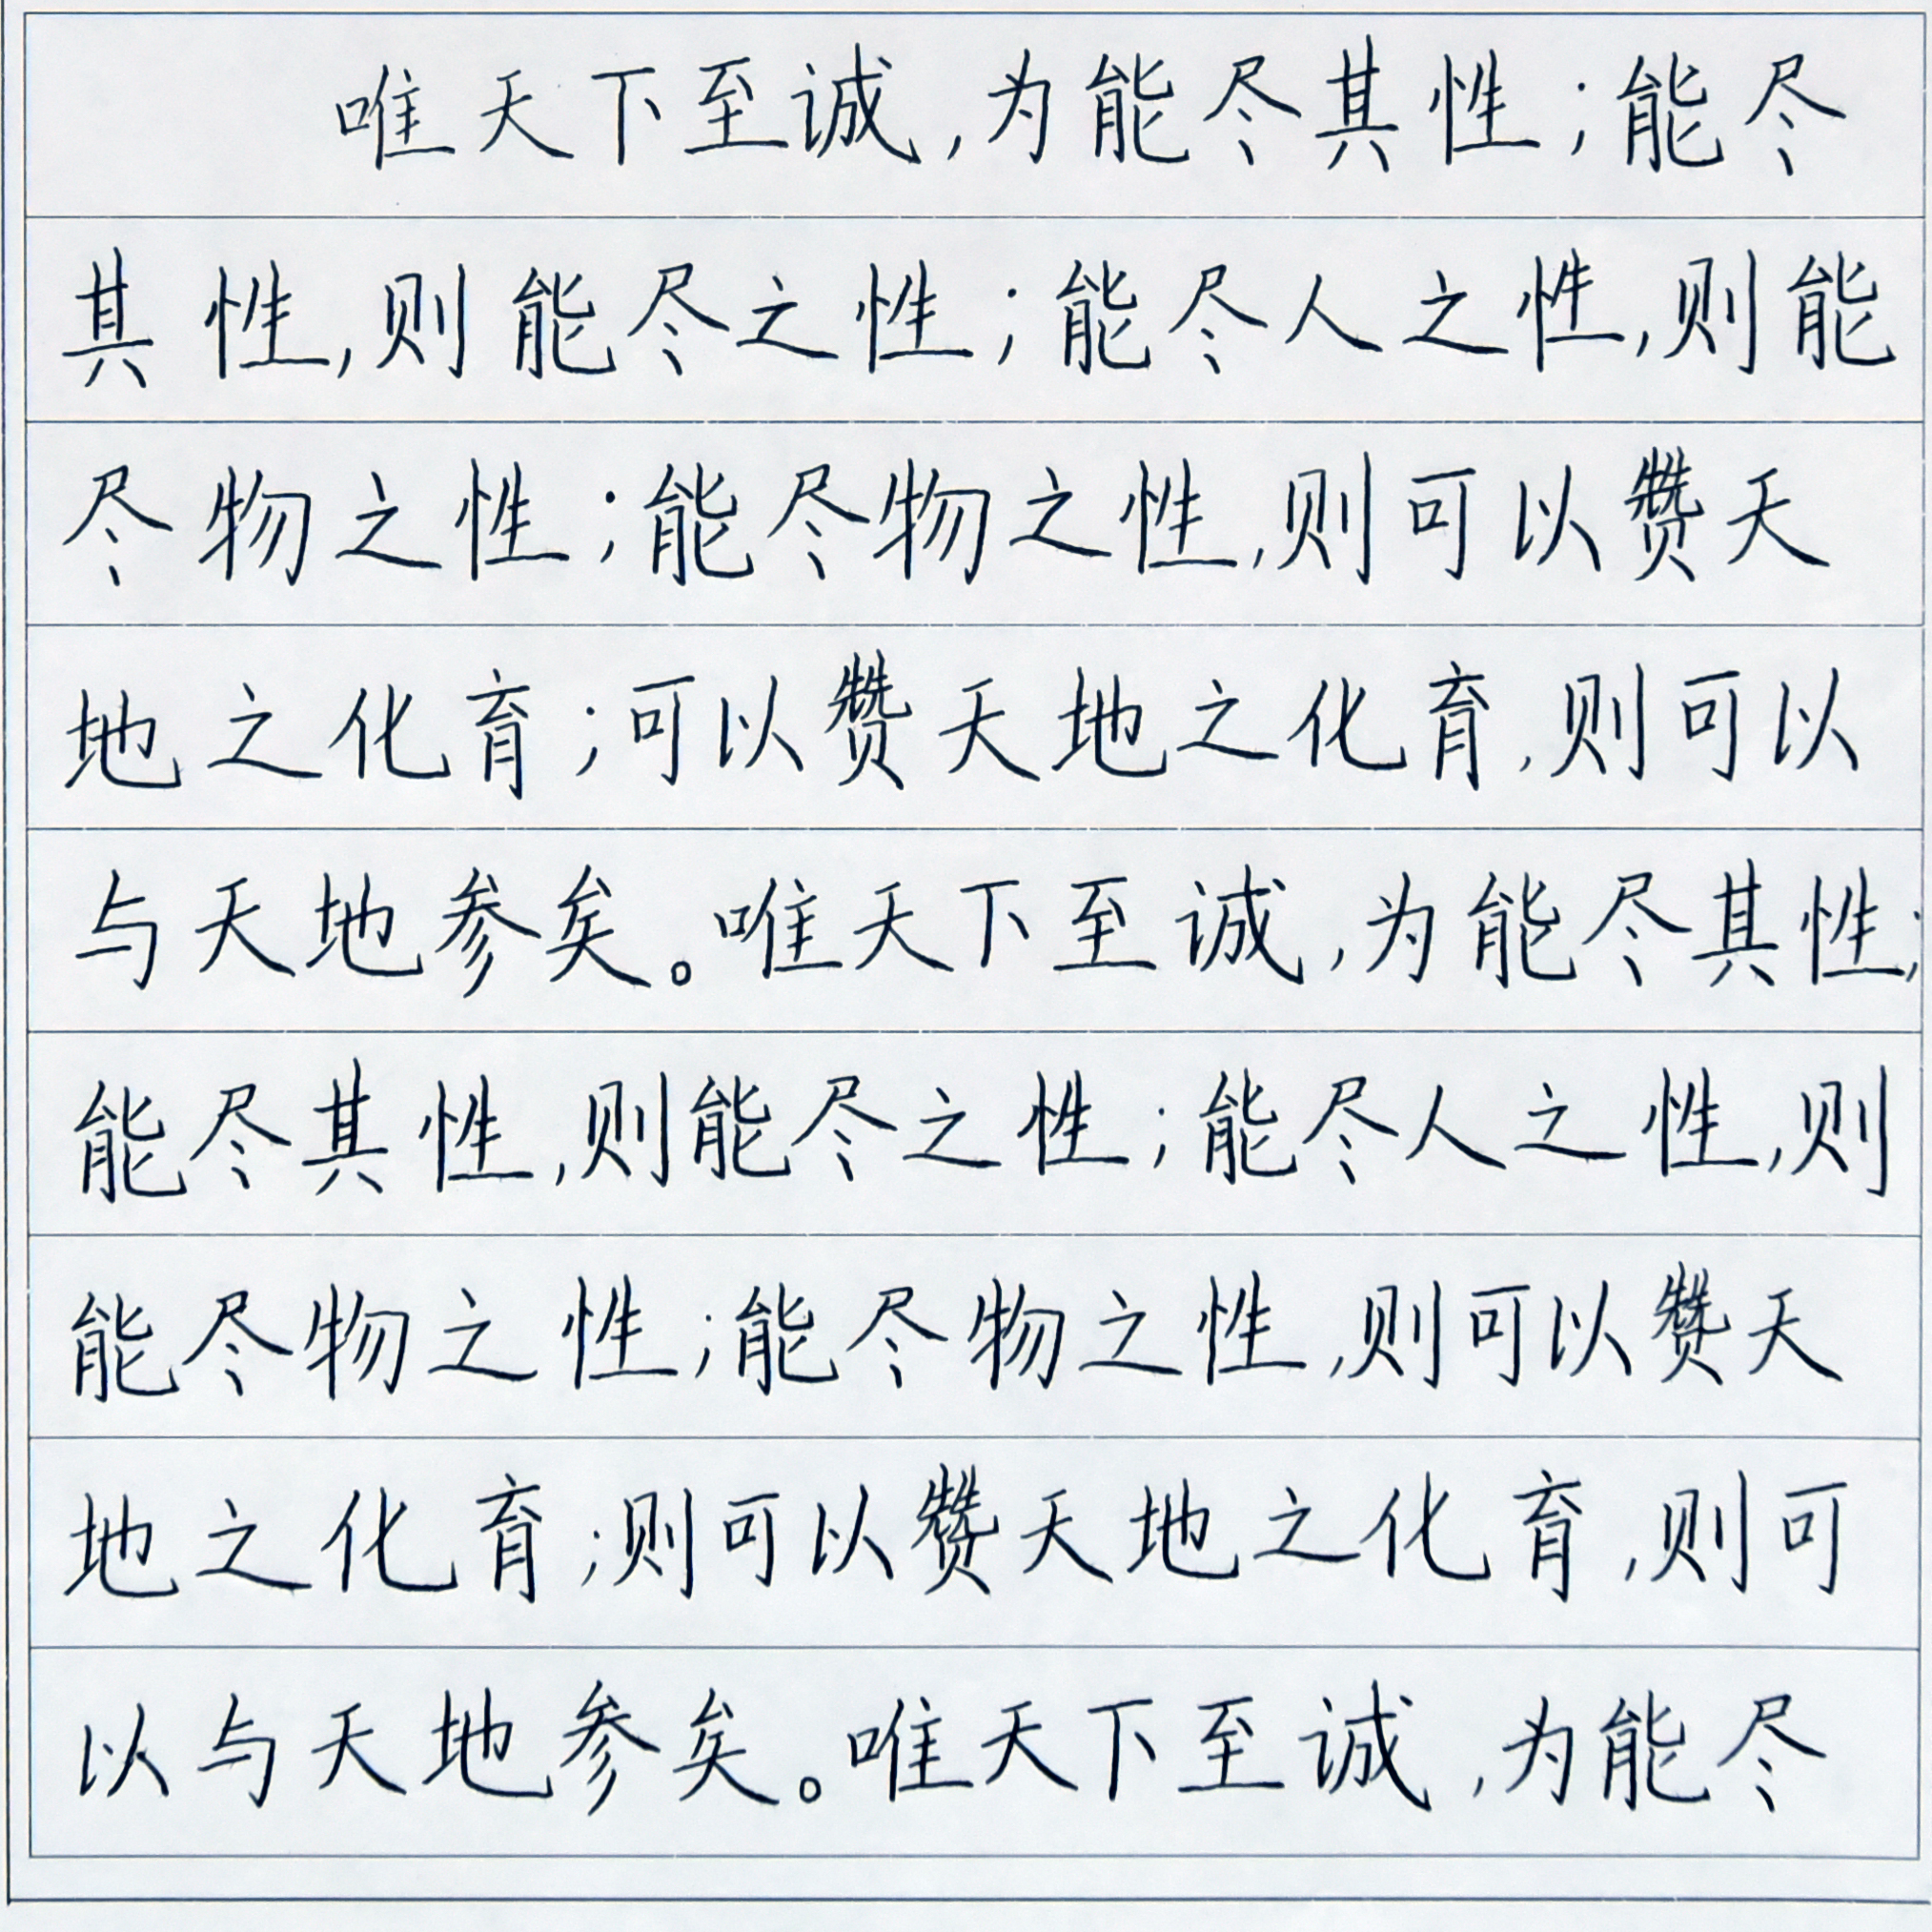 唯天下至诚,为能尽其性;能尽
其性,则能尽之性;能尽人之性,则能
尽物之性;能尽物之性,则可以赞天
地之化育;可以赞天地之化育,则可以
与天地参矣。唯天下至诚,为能尽其性;
能尽其性,则能尽之性;能尽人之性,则
能尽物之性;能尽物之性,则可以赞天
地之化育;则可以赞天地之化育,则可
以与天地参矣。唯天下至诚,为能尽